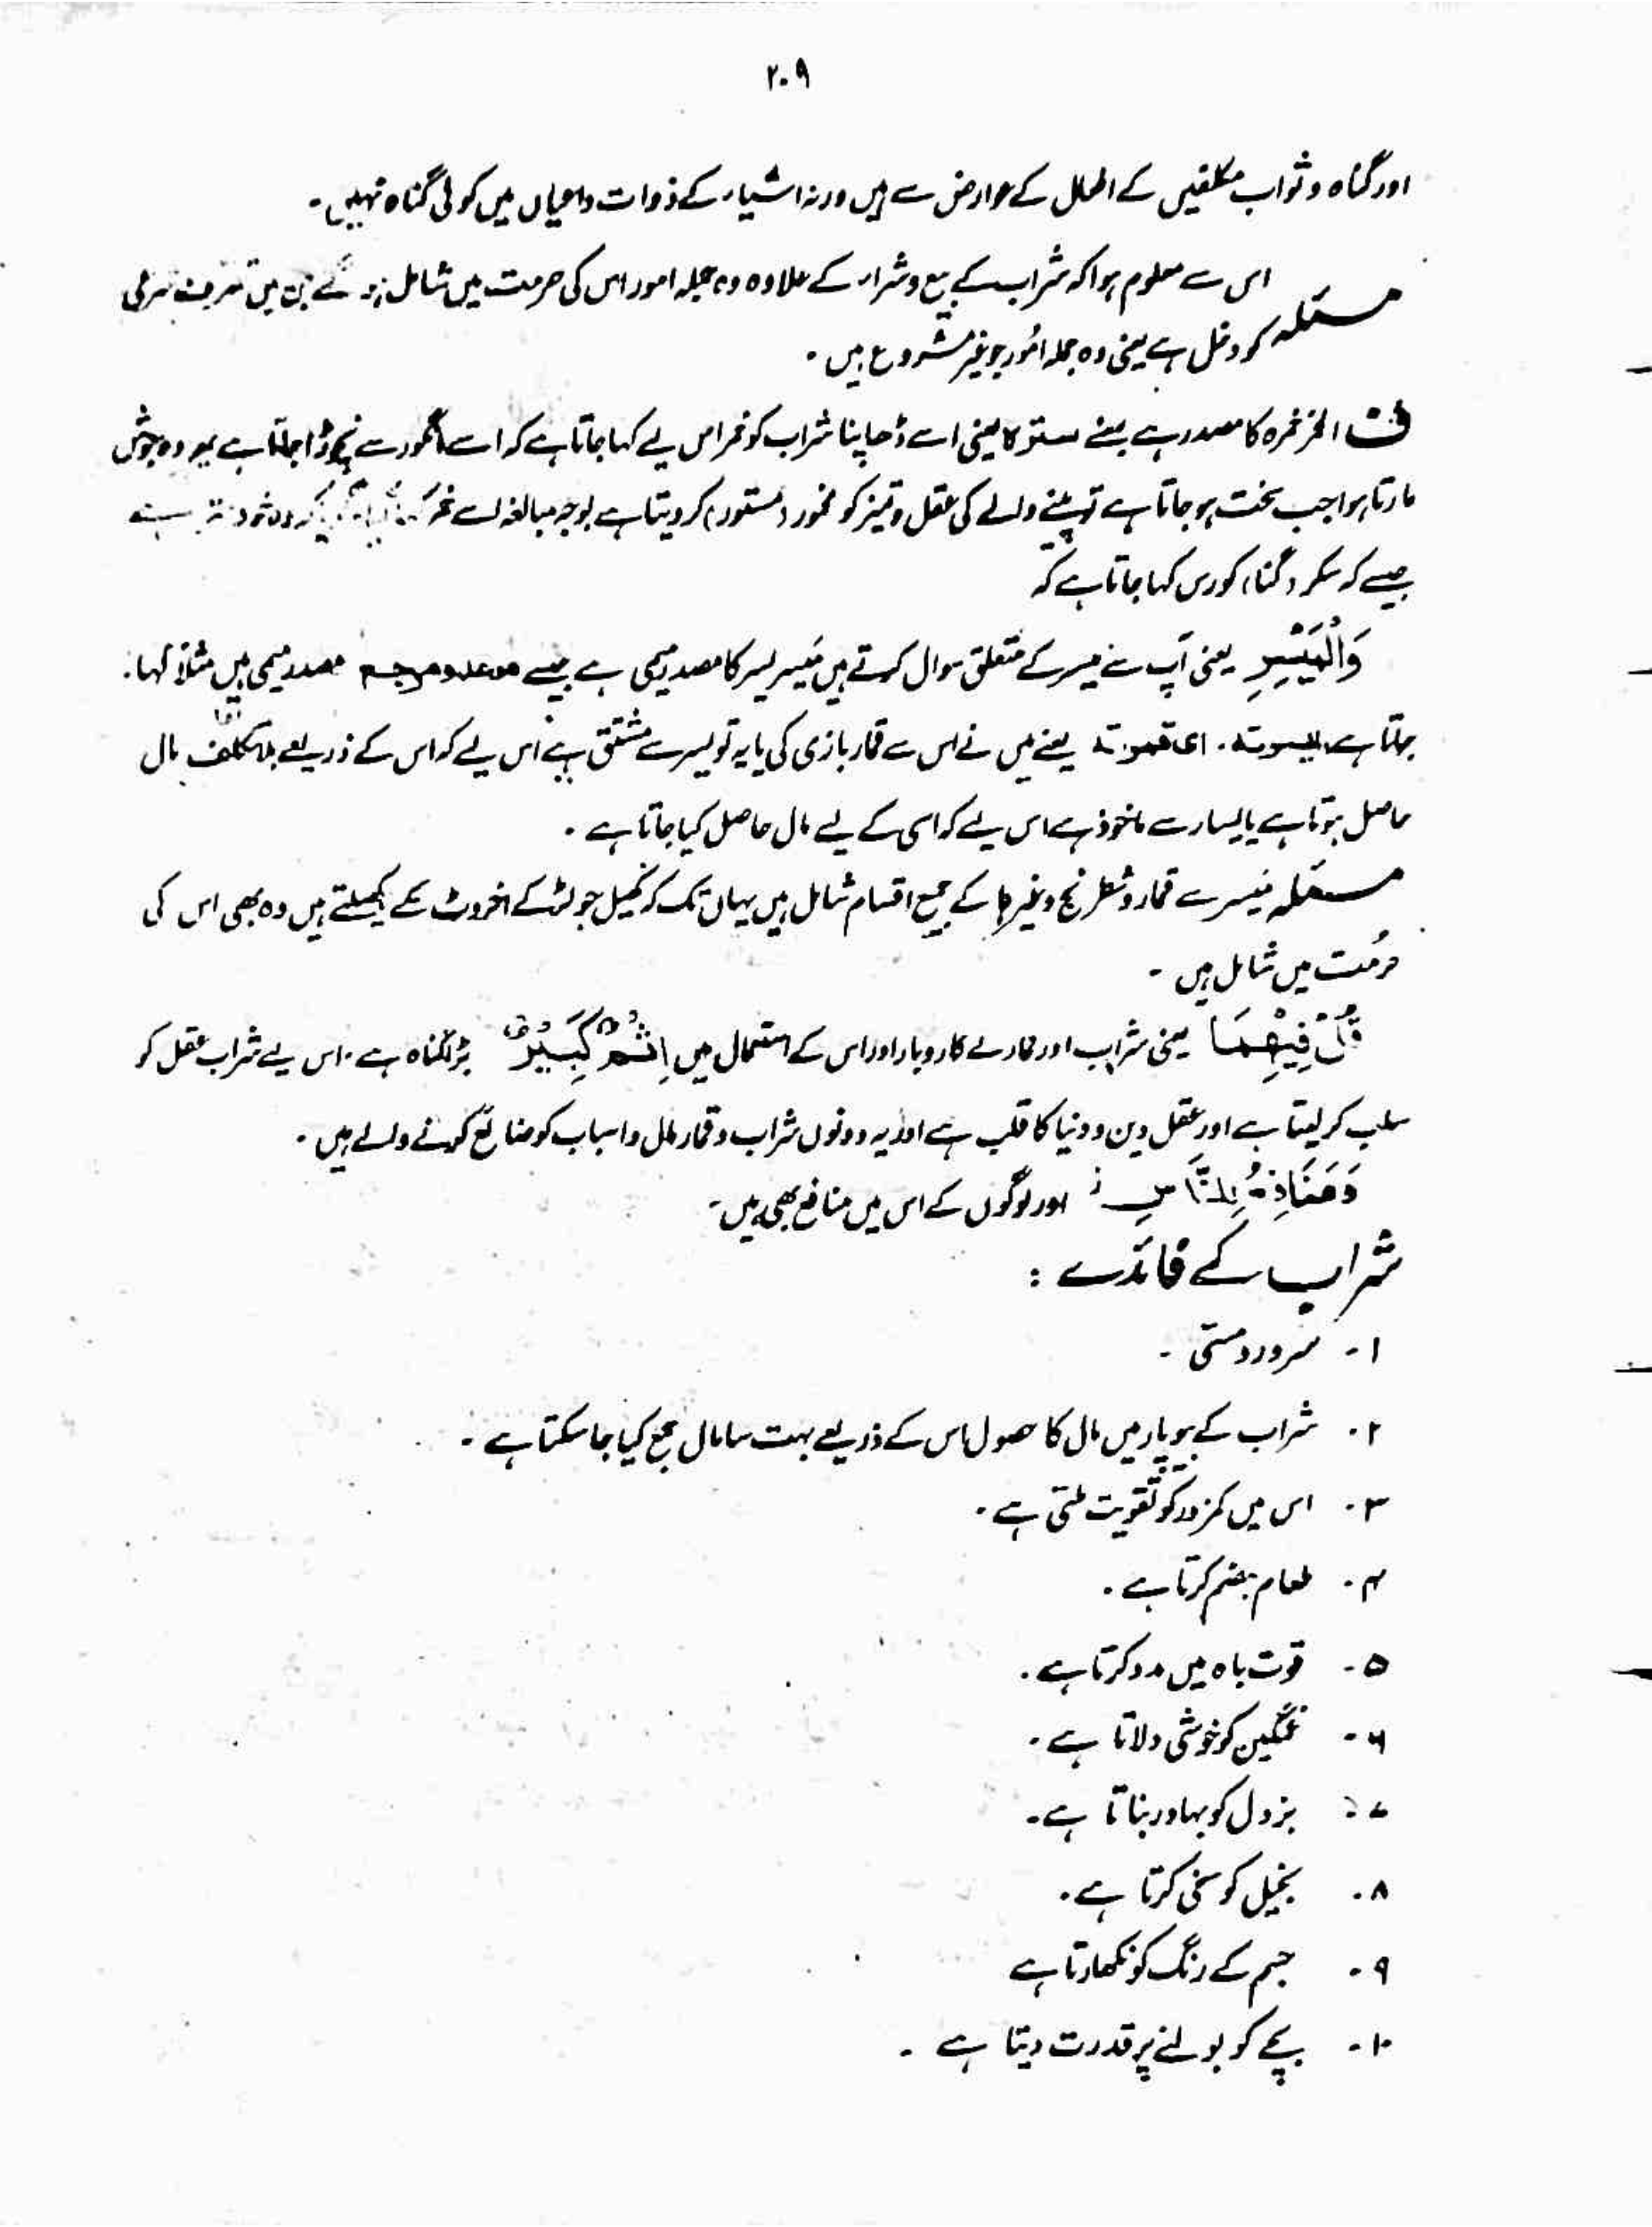 ۲۰۹
اور گناہ و ثواب مکلفین کے افعال کے عوارض سے ہیں ورنہ اشیاء کے ذوات و اعیان میں کوئی گناہ نہیں۔
مسئلہ اس سے معلوم ہوا کہ شراب کے بیع و شراء کے علاوہ وہ جملہ امور اس کی حرمت میں شامل ہوں گے جن میں تصرف شرعی
کو دخل ہے یعنی وہ جملہ امور جو غیر مشروع ہیں۔
ف الخمر خمرہ کا مصدر ہے بمعنے ستر کا یعنی اسے ڈھاپنا شراب کو خمر اس لیے کہا جاتا ہے کہ اسے انگور سے نچوڑا جاتا ہے پھر وہ جوش
مارتا ہوا جب سخت ہو جاتا ہے تو پینے والے کی عقل و تمیز کو مخمور (مستور) کر دیتا ہے بوجہ مبالغہ اسے خمر کہا گیا گویا کہ وہ خود ستر ہے
جیسے کہ سکر (گنا) کو رس کہا جاتا ہے کہ
وَالْمَیْسِرِ یعنی آپ سے میسر کے متعلق سوال کرتے ہیں مَیسر یسر کا مصدر میمی ہے جیسے موعد و مرجع مصدر میمی ہیں مثلاً کہا
جاتا ہے یسرتہ۔ ای قمرتہ یعنے میں نے اس سے قمار بازی کی یا یہ تو یسر سے مشتق ہے اس لیے کہ اس کے ذریعے بلا تکلف مال
حاصل ہوتا ہے یا یسار سے ماخوذ ہے اس لیے کہ اسی کے لیے مال حاصل کیا جاتا ہے۔
مسئلہ میسر سے قمار و شطرنج وغیرہا کے جمیع اقسام شامل ہیں یہاں تک کہ کھیل جو لڑکے اخروٹ سے کھیلتے ہیں وہ بھی اس کی
حرمت میں شامل ہیں۔
قُلْ فِیْھِمَا یعنی شراب اور قمار کے کاروبار اور اس کے استعمال میں اِثْمٌ کَبِیْرٌ بڑا گناہ ہے۔ اس لیے شراب عقل کو
سلب کر لیتا ہے اور عقل دین و دنیا کا قلب ہے اور یہ دونوں شراب و قمار مال و اسباب کو ضائع کرنے والے ہیں۔
وَمَنَافِعُ لِلنَّاسِ ز اور لوگوں کے اس میں منافع بھی ہیں۔
شراب کے فائدے :
۱۔ سرور و مستی۔
۲۔ شراب کے بیوپار میں مال کا حصول اس کے ذریعے بہت سا مال جمع کیا جا سکتا ہے۔
۳۔ اس میں کمزور کو تقویت ملتی ہے۔
۴۔ طعام ہضم کرتا ہے۔
۵۔ قوت باہ میں مدد کرتا ہے۔
۶۔ غمگین کو خوشی دلاتا ہے۔
۷۔ بزدل کو بہادر بناتا ہے۔
۸۔ بخیل کو سخی کرتا ہے۔
۹۔ جسم کے رنگ کو نکھارتا ہے
۱۰۔ بچے کو بولنے پر قدرت دیتا ہے۔